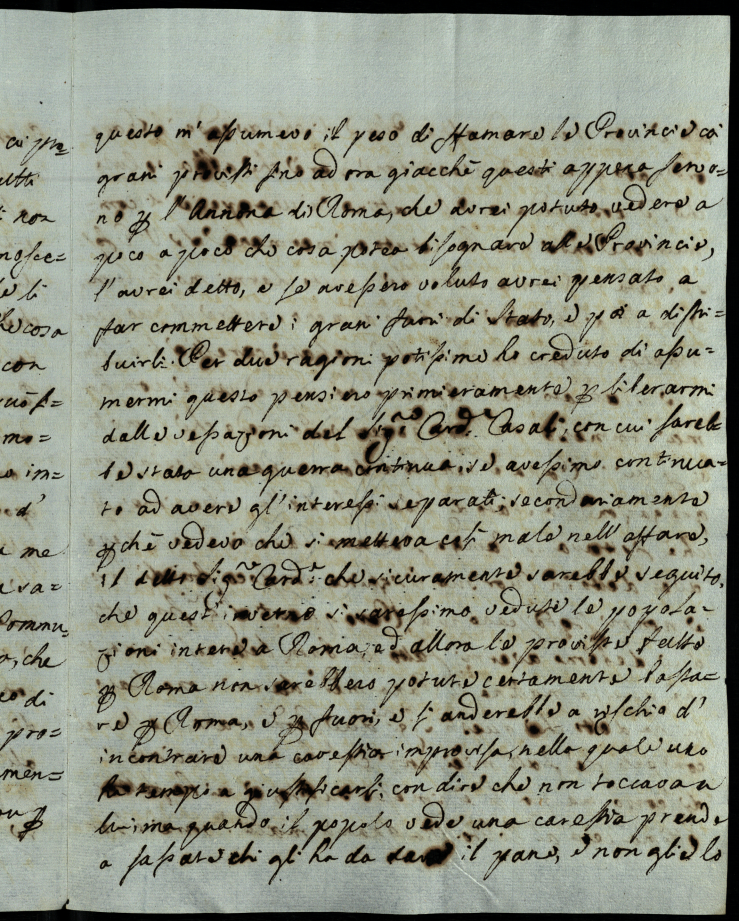 questo m'assumevo il peso di sfamare le Provincie coi
grani provisti fino ad ora giacchè questi appena servo=
no p l'Annona di Roma, che avrei potuto vedere a
poco a poco che cosa potea bisognare alle Provincie,
l'avrei detto, e se avessero voluto avrei pensato a
far commettere i grani fuori di Stato, e poi a distri=
buirli. Per due ragioni potissime ho creduto di assu=
mermi questo pensiero primieramente p liberarmi
dalle vessazioni del Sig.re Card.e Casali, con cui sareb=
be stata una guerra continua, se avessimo continua=
to ad avere gl'interessi separati, secondariamente
pchè vedevo che si metteva così male nell'affare,
il detto Sig.re Card.e che sicuramente sarebbe seguito,
che quest'inverno si saressimo vedute le popola=
zioni intere a Roma, ed allora le proviste fatte
p Roma non sarebbero potute certamente basta=
re p Roma, e p fuori, e si anderebbe a rischio d'
incontrare una carestia improvisa, nella quale uno
ha tempo a giustificarsi, con dire che non toccava a
lui, ma quando il popolo vede una carestia prende
a sassate chi gli ha da dare il pane, e non glie lo
cui pre=
utti
i non
nosce=
le li
he cosa
con
mo=
o im=
d'
a me
a sa=
Commu=
o, che
eo di
pro=
men=
p